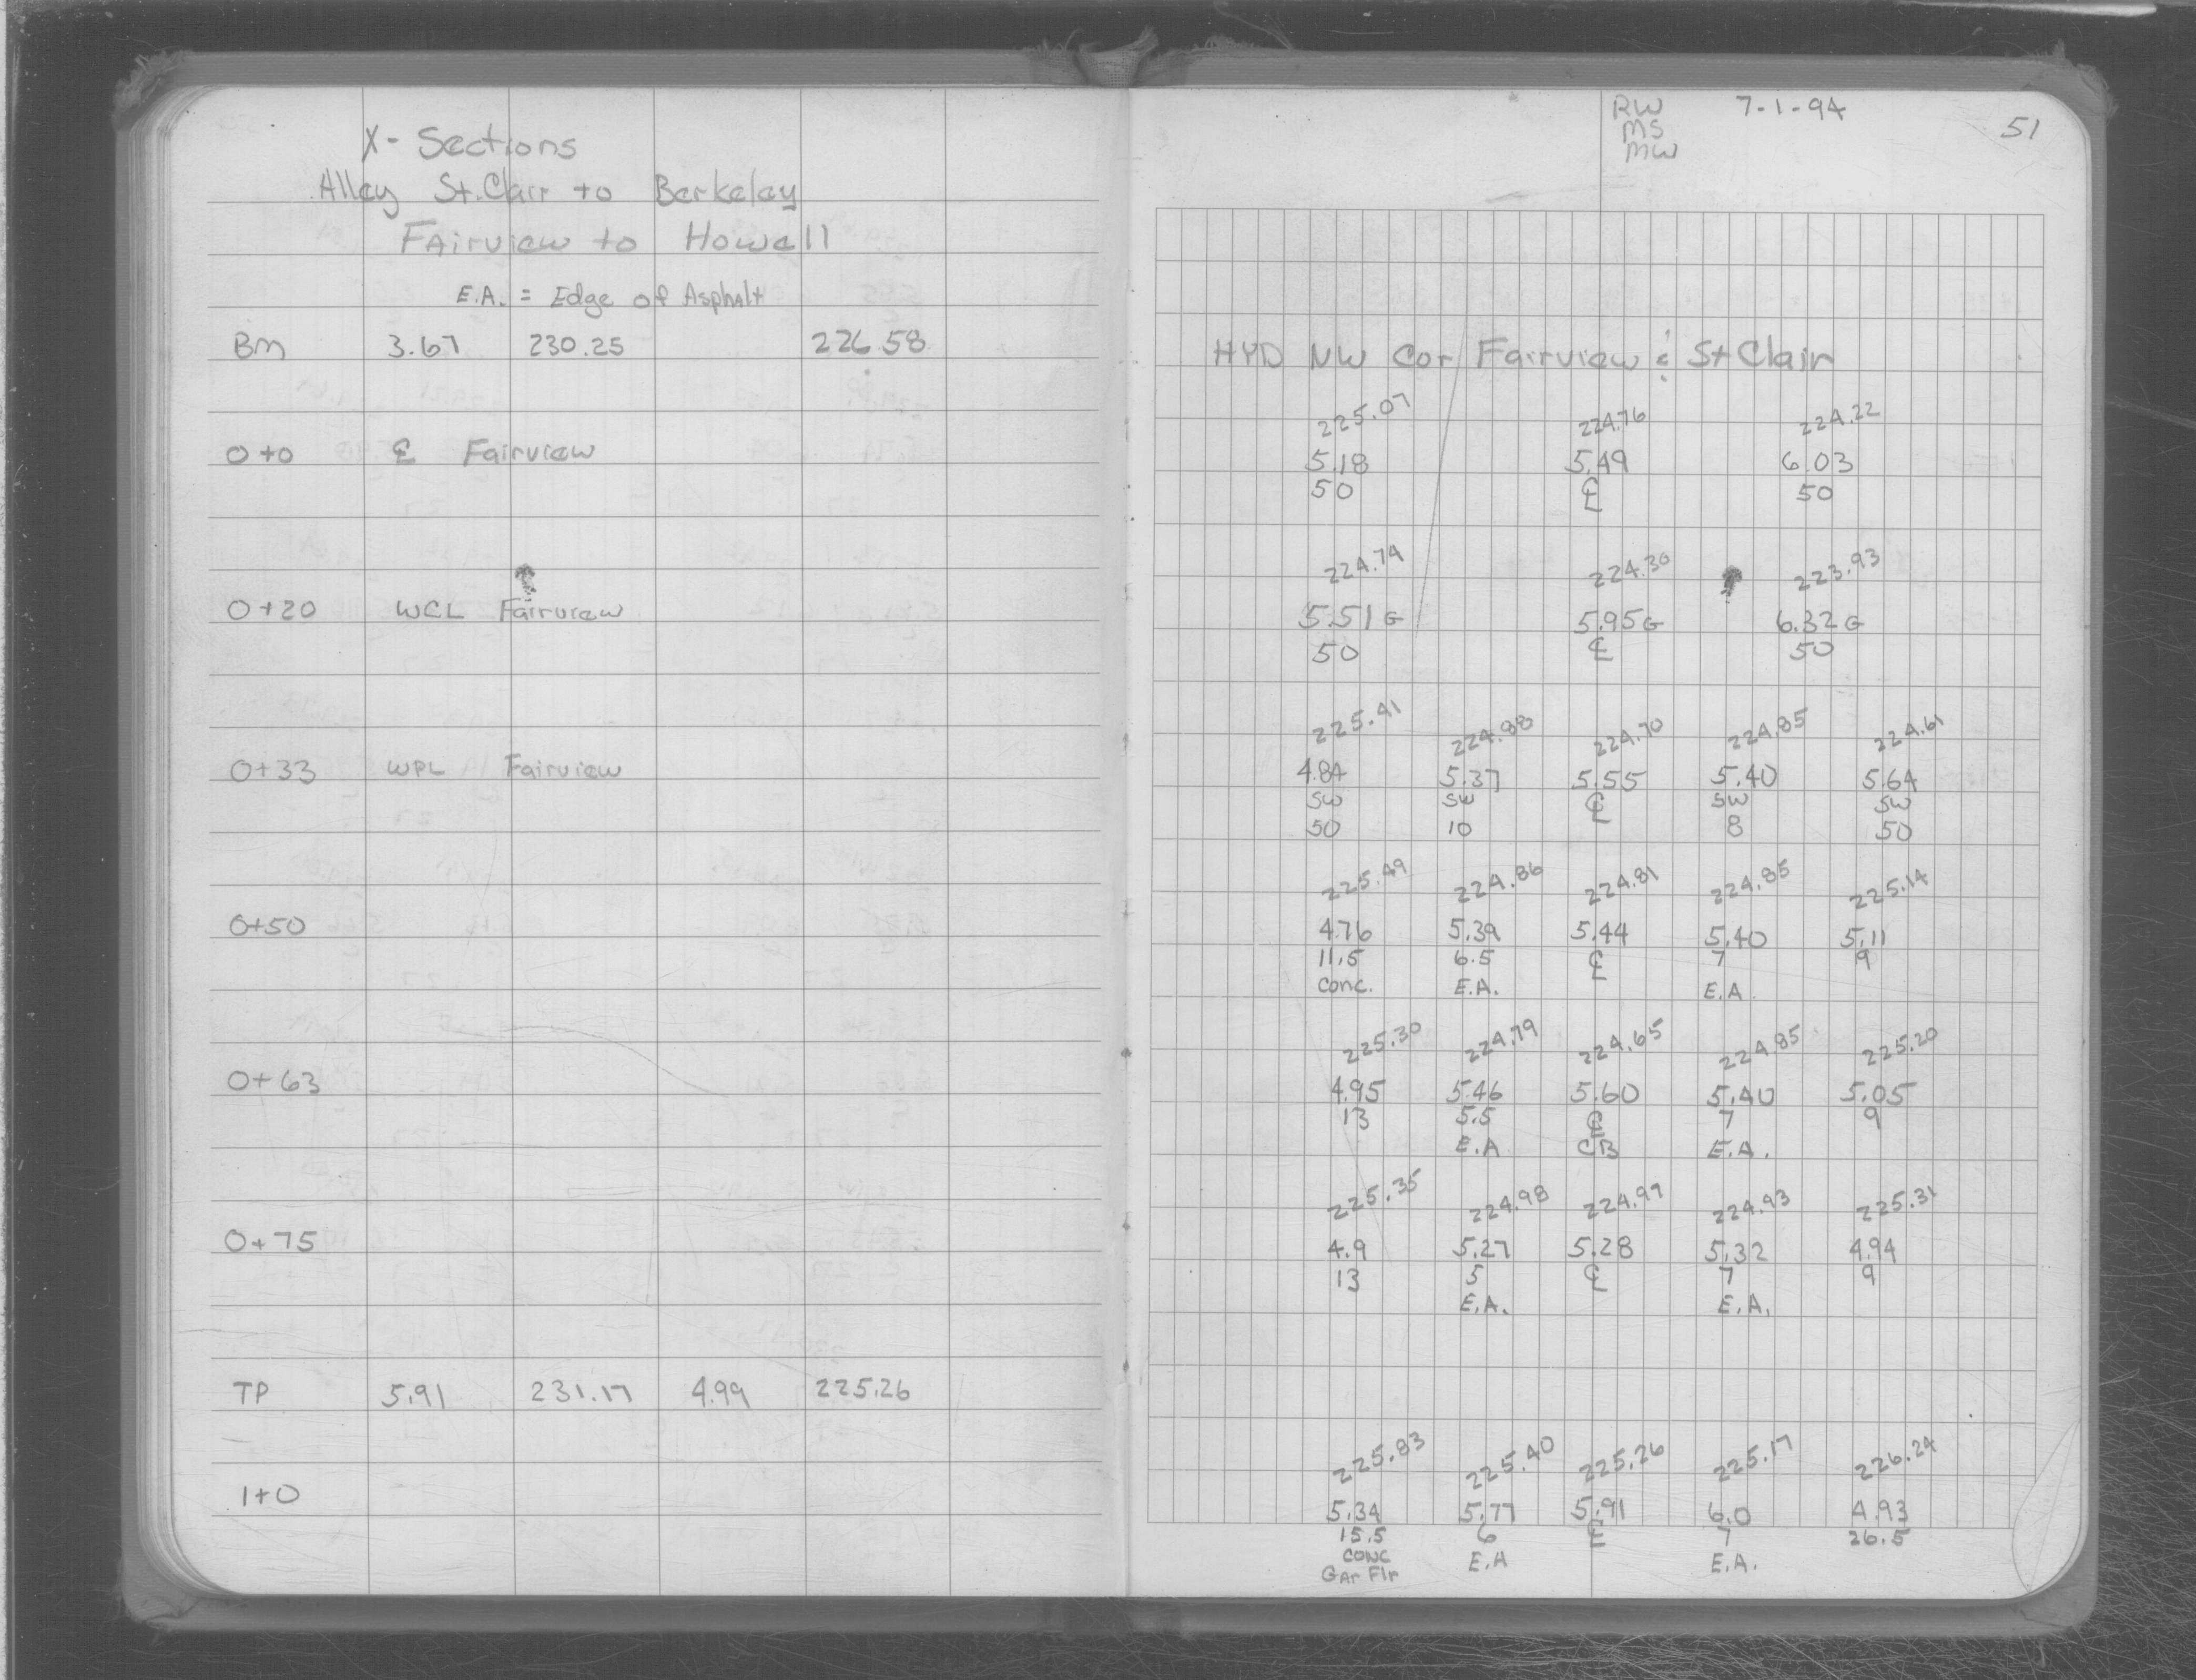 X- Sections
Alley St.Clair to Berkeley
FAirview to Howell
E.A. = Edge of Asphalt
BM 3.67 230.25 226.58
0+0 ℄ Fairview
0+20 WCL Fairview
0+33 WPL Fairview
0+50
0+63
0+75
TP 5.91 231.17 4.99 225.26
1+0
RW 7-1-94
MS
MW
51
HYD NW Cor Fairview & St Clair
225.07 224.76 224.22
5.18 5.49 6.03
50 ℄ 50
224.74 224.30 223.93
5.51 G 5.95 G 6.32 G
50 ℄ 50
225.41 224.88 224.70 224.85 224.61
4.84 5.37 5.55 5.40 5.64
SW SW ℄ SW SW
50 10 8 50
225.49 224.86 224.81 224.85 225.14
4.76 5.39 5.44 5.40 5.11
11.5 6.5 ℄ 7 9
Conc. E.A. E.A.
225.30 224.79 224.65 224.85 225.20
4.95 5.46 5.60 5.40 5.05
13 5.5 ℄ 7 9
E.A CB E.A.
225.35 224.98 224.97 224.93 225.31
4.9 5.27 5.28 5.32 4.94
13 5 ℄ 7 9
E.A. E.A.
225.83 225.40 225.26 225.17 226.24
5.34 5.77 5.91 6.0 4.93
15.5 6 ℄ 7 26.5
CONC E.A E.A.
GAr Flr